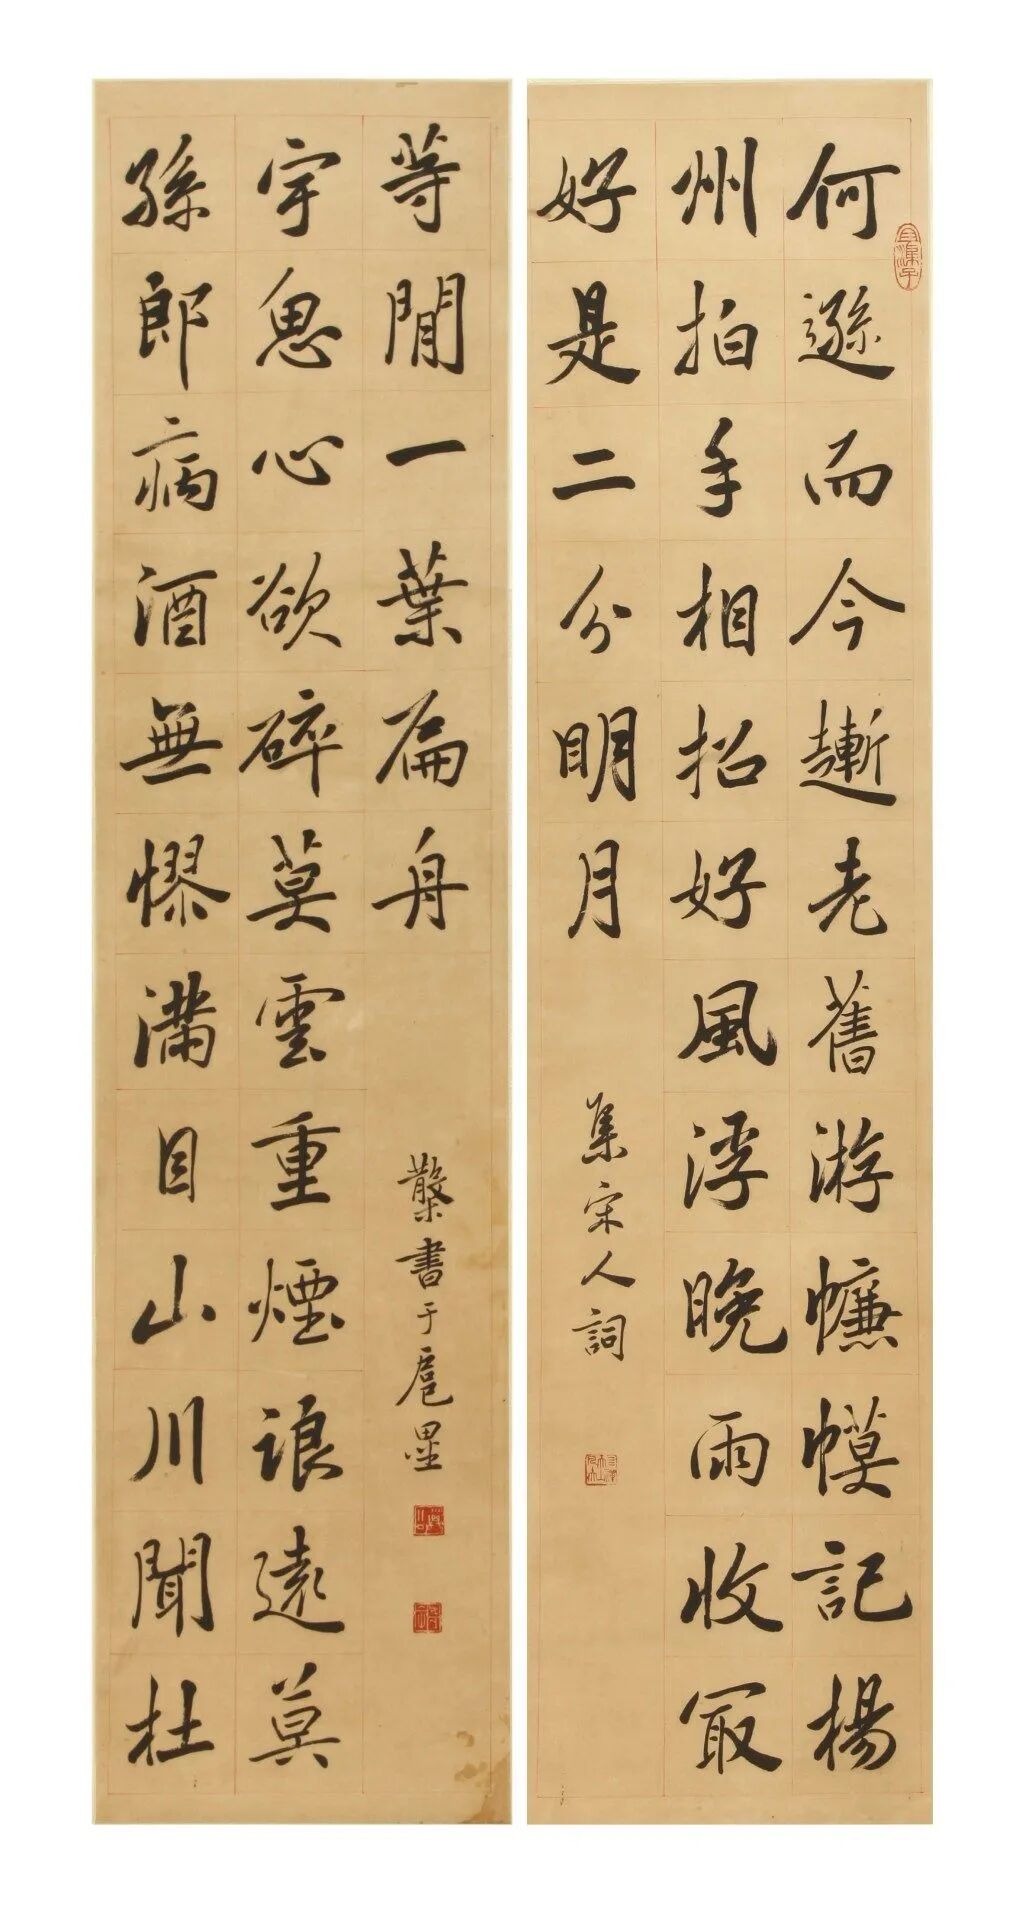 何遜而今漸老舊游㡘幙記楊
州拍手相招好風浮晚雨收冣
好是二分明月
集宋人詞
孫郎病酒無憀滿目山川聞杜
宇思心欲碎莫雲重煙浪遠莫
等閒一葉扁舟
書于扈